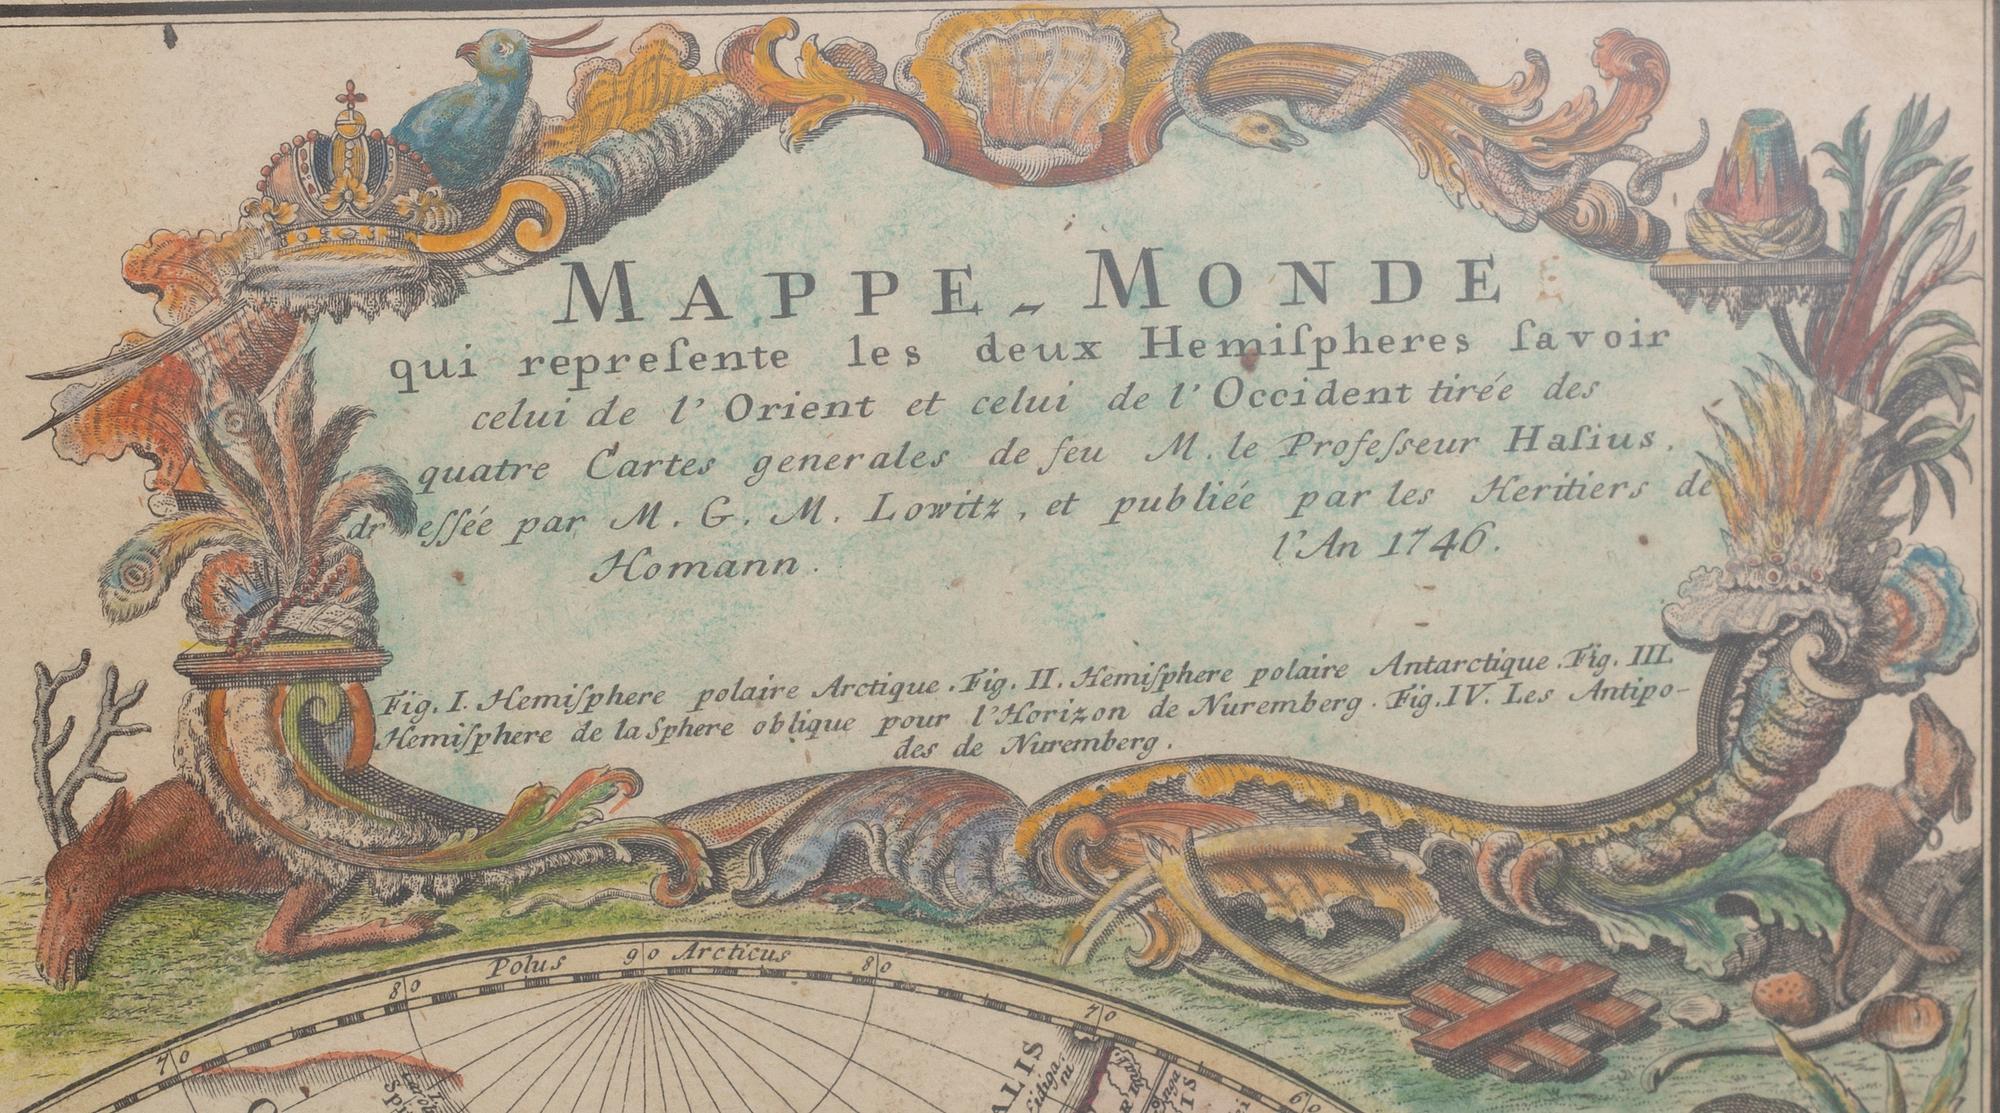 MAPPE - MONDE
qui repreſente les deux Hemiſpheres ſavoir
celui de l' Orient et celui de l' Occident tirée des
quatre Cartes generales de feu M. le Profeſseur Haſius.
dreſsée par M. G. M. Lowitz, et publiée par les Heritiers de
Homann. l'An 1746.
Fig. I. Hemiſphere polaire Arctique. Fig. II. Hemiſphere polaire Antarctique. Fig. III.
Hemiſphere de la Sphere oblique pour l'Horizon de Nuremberg. Fig. IV. Les Antipo-
des de Nuremberg.
Polus 90 Arcticus
80
80
70
70
60
ALIS